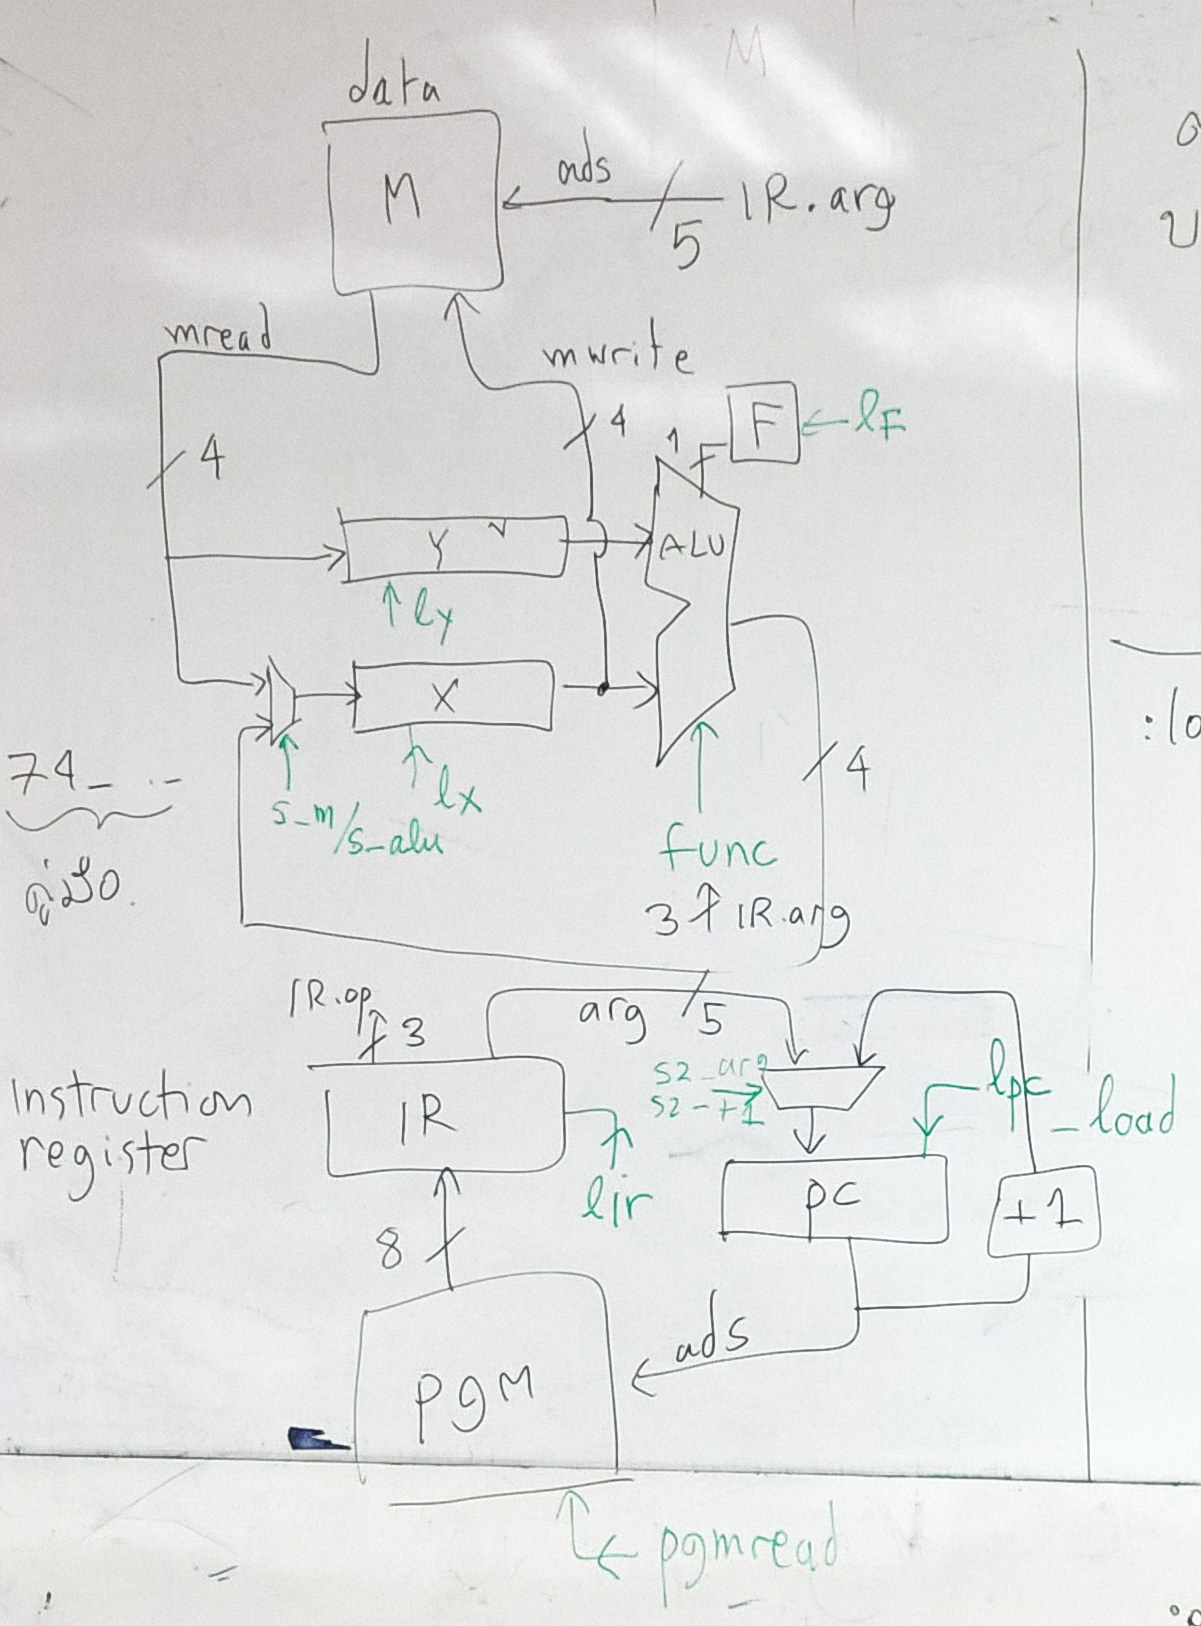 M
data
M
ads
5
IR.arg
mread
mwrite
4
4
1
F
lF
Y
ALU
ly
X
lx
s_m/s_alu
74_ ..
4
func
3 IR.arg
IR.op
3
arg
5
s2_arg
s2_+1
lpc_load
Instruction
register
IR
lir
pc
+1
8
ads
pgm
pgmread